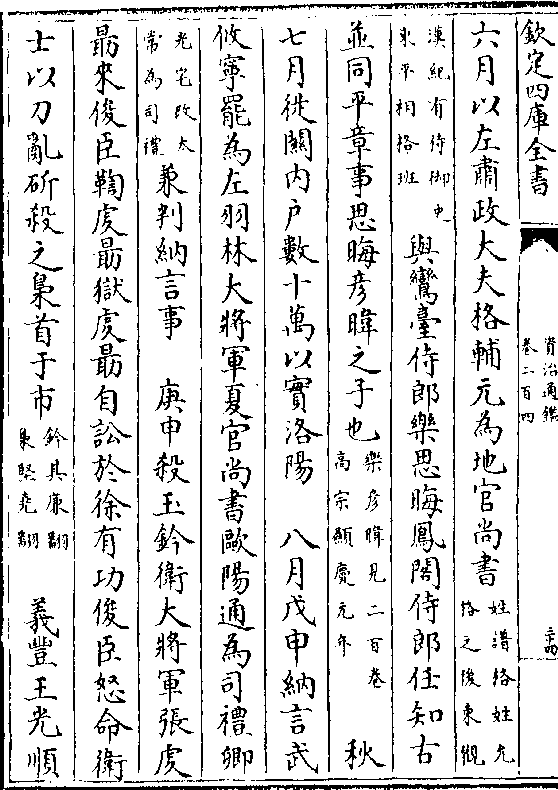 欽定四庫全書
資治通鑑
卷二百四
六月以左肅政大夫格輔元為地官尚書姓譜格姓允格之後東觀
漢紀有侍御史東平相格班與鸞臺侍郎樂思晦鳳閣侍郎任知古
並同平章事思晦彦暐之子也樂彦暐見二百卷高宗顯慶元年 秋
七月徙關内户數十萬以實洛陽 八月戊申納言武
攸寧罷為左羽林大將軍夏官尚書歐陽通為司禮卿
光宅改太常為司禮兼判納言事 庚申殺玉鈐衛大將軍張虔
朂來俊臣鞫虔朂獄虔朂自訟於徐有功俊臣怒命衛
士以刀亂斫殺之梟首于市鈐其亷翻梟堅堯翻 義豐王光順